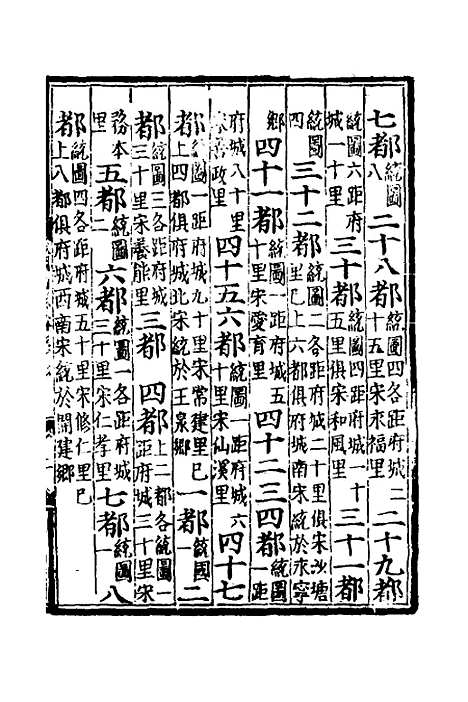 七都統圖八二十八都統圖四各距府城二十五里宋來福里二十九都
統圖六距府城一十里三十都統圖四距府城一十五里俱宋和風里三十一都
統圖四三十二都統圖二各距府城二十里俱宋沙塘里已上六都俱府城南宋統於永寧
鄉四十一都統圖一距府城五十里宋愛育里四十二三四都統圖一距
府城八十里宋善政里四十五六都統圖一距府城六十里宋仙溪里四十七
都統圖一距府城九十里宋常建里已上四都俱府城北宋統於玉泉鄉一都統圖一二
都統圖三各距府城三十里宋養能里三都四都上二都各統圖一距府城三十里宋
務本里五都統圖二六都統圖一各距府城三十里宋仁孝里七都統圖一八
都統圖四各距府城五十里宋修仁里已上八都俱府城西南宋統於開建鄉